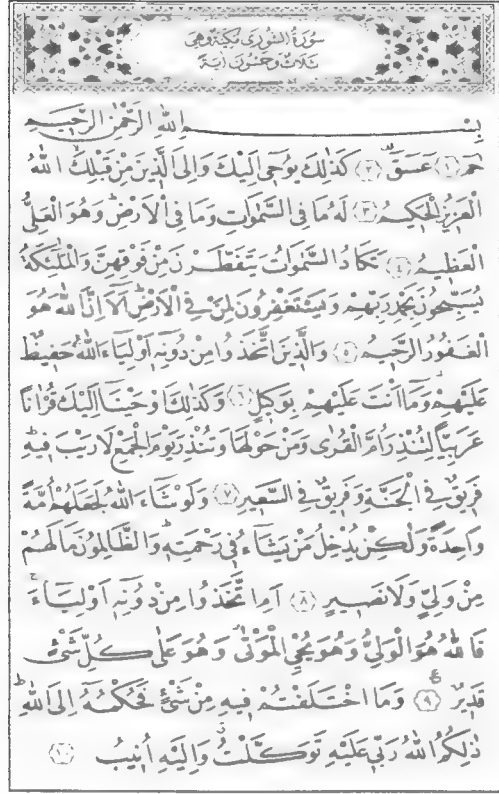 سُورَةُ الشُّورٰى مَكِّيَّةٌ وَهِيَ
ثَلَاثٌ وَخَمْسُونَ اٰيَةً
بِسْمِ اللّٰهِ الرَّحْمٰنِ الرَّح۪يمِ
حٰمٓ ﴿١﴾ عٓسٓقٓ ﴿٢﴾ كَذٰلِكَ يُوح۪ٓي اِلَيْكَ وَاِلَى الَّذ۪ينَ مِنْ قَبْلِكَۙ اللّٰهُ
الْعَز۪يزُ الْحَك۪يمُ ﴿٣﴾ لَهُ مَا فِي السَّمٰوَاتِ وَمَا فِي الْاَرْضِۜ وَهُوَ الْعَلِيُّ
الْعَظ۪يمُ ﴿٤﴾ تَكَادُ السَّمٰوَاتُ يَتَفَطَّرْنَ مِنْ فَوْقِهِنَّ وَالْمَلٰٓئِكَةُ
يُسَبِّحُونَ بِحَمْدِ رَبِّهِمْ وَيَسْتَغْفِرُونَ لِمَنْ فِي الْاَرْضِۜ اَلَٓا اِنَّ اللّٰهَ هُوَ
الْغَفُورُ الرَّح۪يمُ ﴿٥﴾ وَالَّذ۪ينَ اتَّخَذُوا مِنْ دُونِه۪ٓ اَوْلِيَٓاءَ اللّٰهُ حَف۪يظٌ
عَلَيْهِمْۘ وَمَٓا اَنْتَ عَلَيْهِمْ بِوَك۪يلٍ ﴿٦﴾ وَكَذٰلِكَ اَوْحَيْنَٓا اِلَيْكَ قُرْاٰنًا
عَرَبِيًّا لِتُنْذِرَ اُمَّ الْقُرٰى وَمَنْ حَوْلَهَا وَتُنْذِرَ يَوْمَ الْجَمْعِ لَا رَيْبَ ف۪يهِۜ
فَر۪يقٌ فِي الْجَنَّةِ وَفَر۪يقٌ فِي السَّع۪يرِ ﴿٧﴾ وَلَوْ شَٓاءَ اللّٰهُ لَجَعَلَهُمْ اُمَّةً
وَاحِدَةً وَلٰكِنْ يُدْخِلُ مَنْ يَشَٓاءُ ف۪ي رَحْمَتِه۪ۜ وَالظَّالِمُونَ مَا لَهُمْ
مِنْ وَلِيٍّ وَلَا نَص۪يرٍ ﴿٨﴾ اَمِ اتَّخَذُوا مِنْ دُونِه۪ٓ اَوْلِيَٓاءَۚ
فَاللّٰهُ هُوَ الْوَلِيُّ وَهُوَ يُحْيِ الْمَوْتٰىۘ وَهُوَ عَلٰى كُلِّ شَيْءٍ
قَد۪يرٌ ﴿٩﴾ وَمَا اخْتَلَفْتُمْ ف۪يهِ مِنْ شَيْءٍ فَحُكْمُهُٓ اِلَى اللّٰهِۜ
ذٰلِكُمُ اللّٰهُ رَبّ۪ي عَلَيْهِ تَوَكَّلْتُۗ وَاِلَيْهِ اُن۪يبُ ﴿١٠﴾